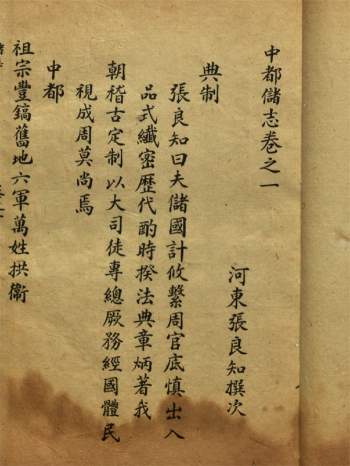 中都儲志卷之一
河東張良知撰次
典制
張良知曰夫儲國計攸繫周官底慎出入
品式纖密歷代酌時揆法典章炳著我
朝稽古定制以大司徒專總厥務經國體民
視成周莫尚焉
中都
祖宗豐鎬舊地六軍萬姓拱衛